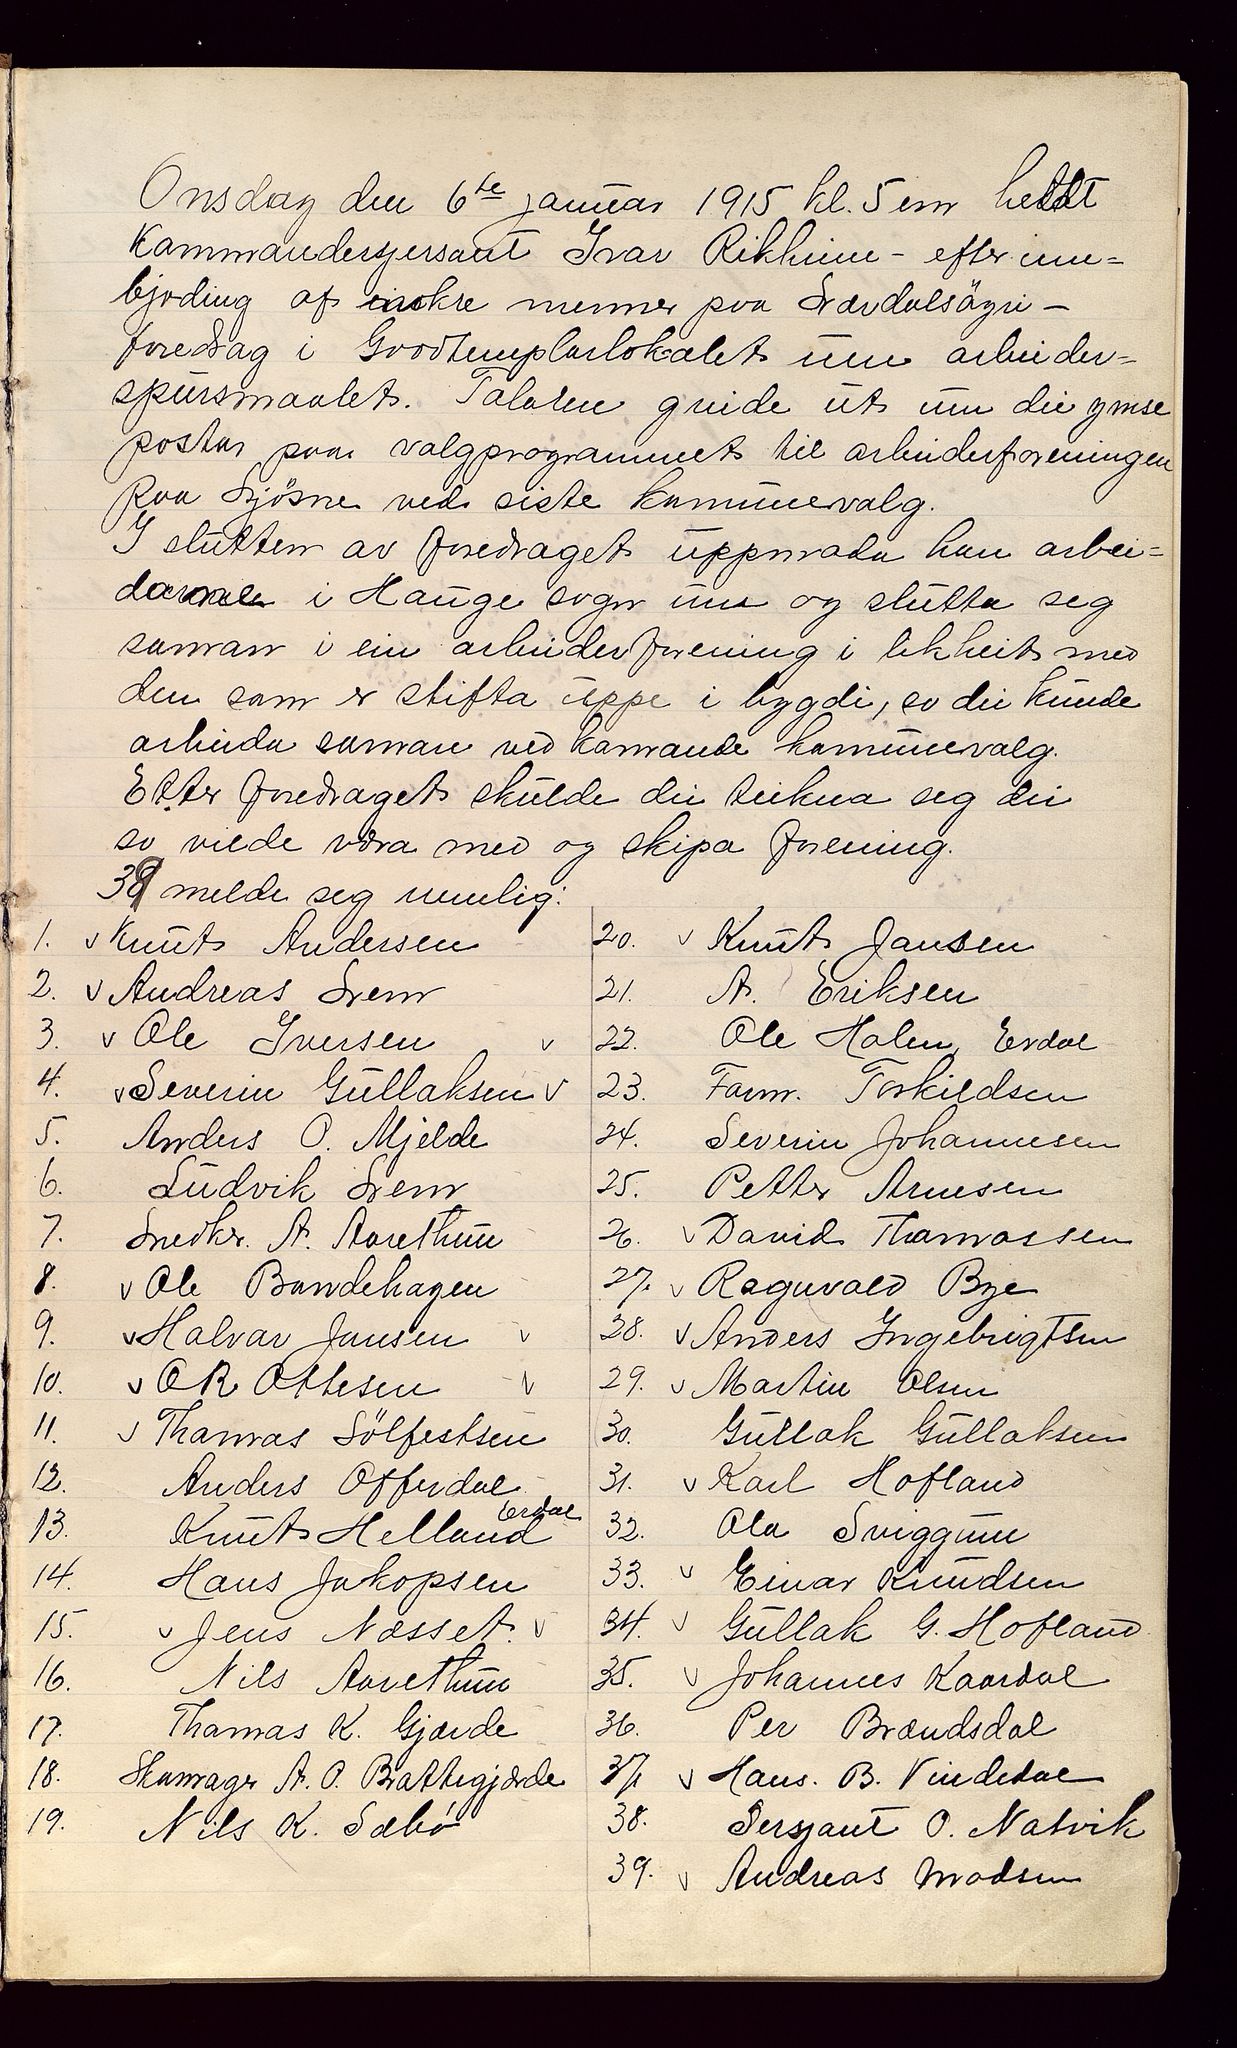 Onsdag den 6te januar 1915 kl. 5 em heldt
Kommandersjersant Ivar Rikheim - efter inn=
bjoding af nokre menner paa Lærdalsöyri -
foredrag i Goodtemplarlokalet um arbeider=
spursmaalet. Talaren greide ut um dei ymse
postar paa valgprogrammet til arbeiderforeningen
paa Ljösne ved siste kommunevalg.
I slutten av foredraget uppmoda han arbei=
darane i Hauge sogn um og slutta seg
saman i ein arbeiderforening i likheit med
den som er stifta uppe i bygdi, so dei kunde
arbeida saman ved komande kommunevalg.
Etter foredraget skulde dei teikna seg dei
so vilde vera med og skipa forening.
39 melde seg nemlig:
1. v Knut Andersen
2. v Andreas Grem
3. v Ole Iversen v
4. v Severin Gullaksen v
5. Anders O. Mjelde
6. Ludvik Grem
7. Snedkr. A. Aarethun
8. v Ole Bandehagen
9. v Halvar Jansen v
10. v O R Ottesen v
11. v Thomas Sölfestsen
12. Anders Offerdal
13. Knut Helland Erdal
14. Hans Jakopsen
15. v Jens Næsset. v
16. Nils Aarethun
17. Thomas K. Gjærde
18. Skomager A. O. Brattegjærde
19. Nils K. Sæbö
20. v Knut Jansen
21. A. Eriksen
22. Ole Halen, Erdal
23. Form. Torkildsen
24. Severin Johannesen
25. Petter Arnesen
26. v David Thomassen
27. v Ragnvald Bye
28. v Anders Ingebrigtsen
29. v Martin Olsen
30. Gullak Gullaksen
31. v Karl Hofland
32. Ola Sviggum
33. v Einar Knudsen
34. v Gullak G. Hofland
35. v Johannes Kaardal
36. Per Brændsdal
37. v Hans. B. Vindedal
38. Sersjant O. Natvik
39. v Andreas Madsen